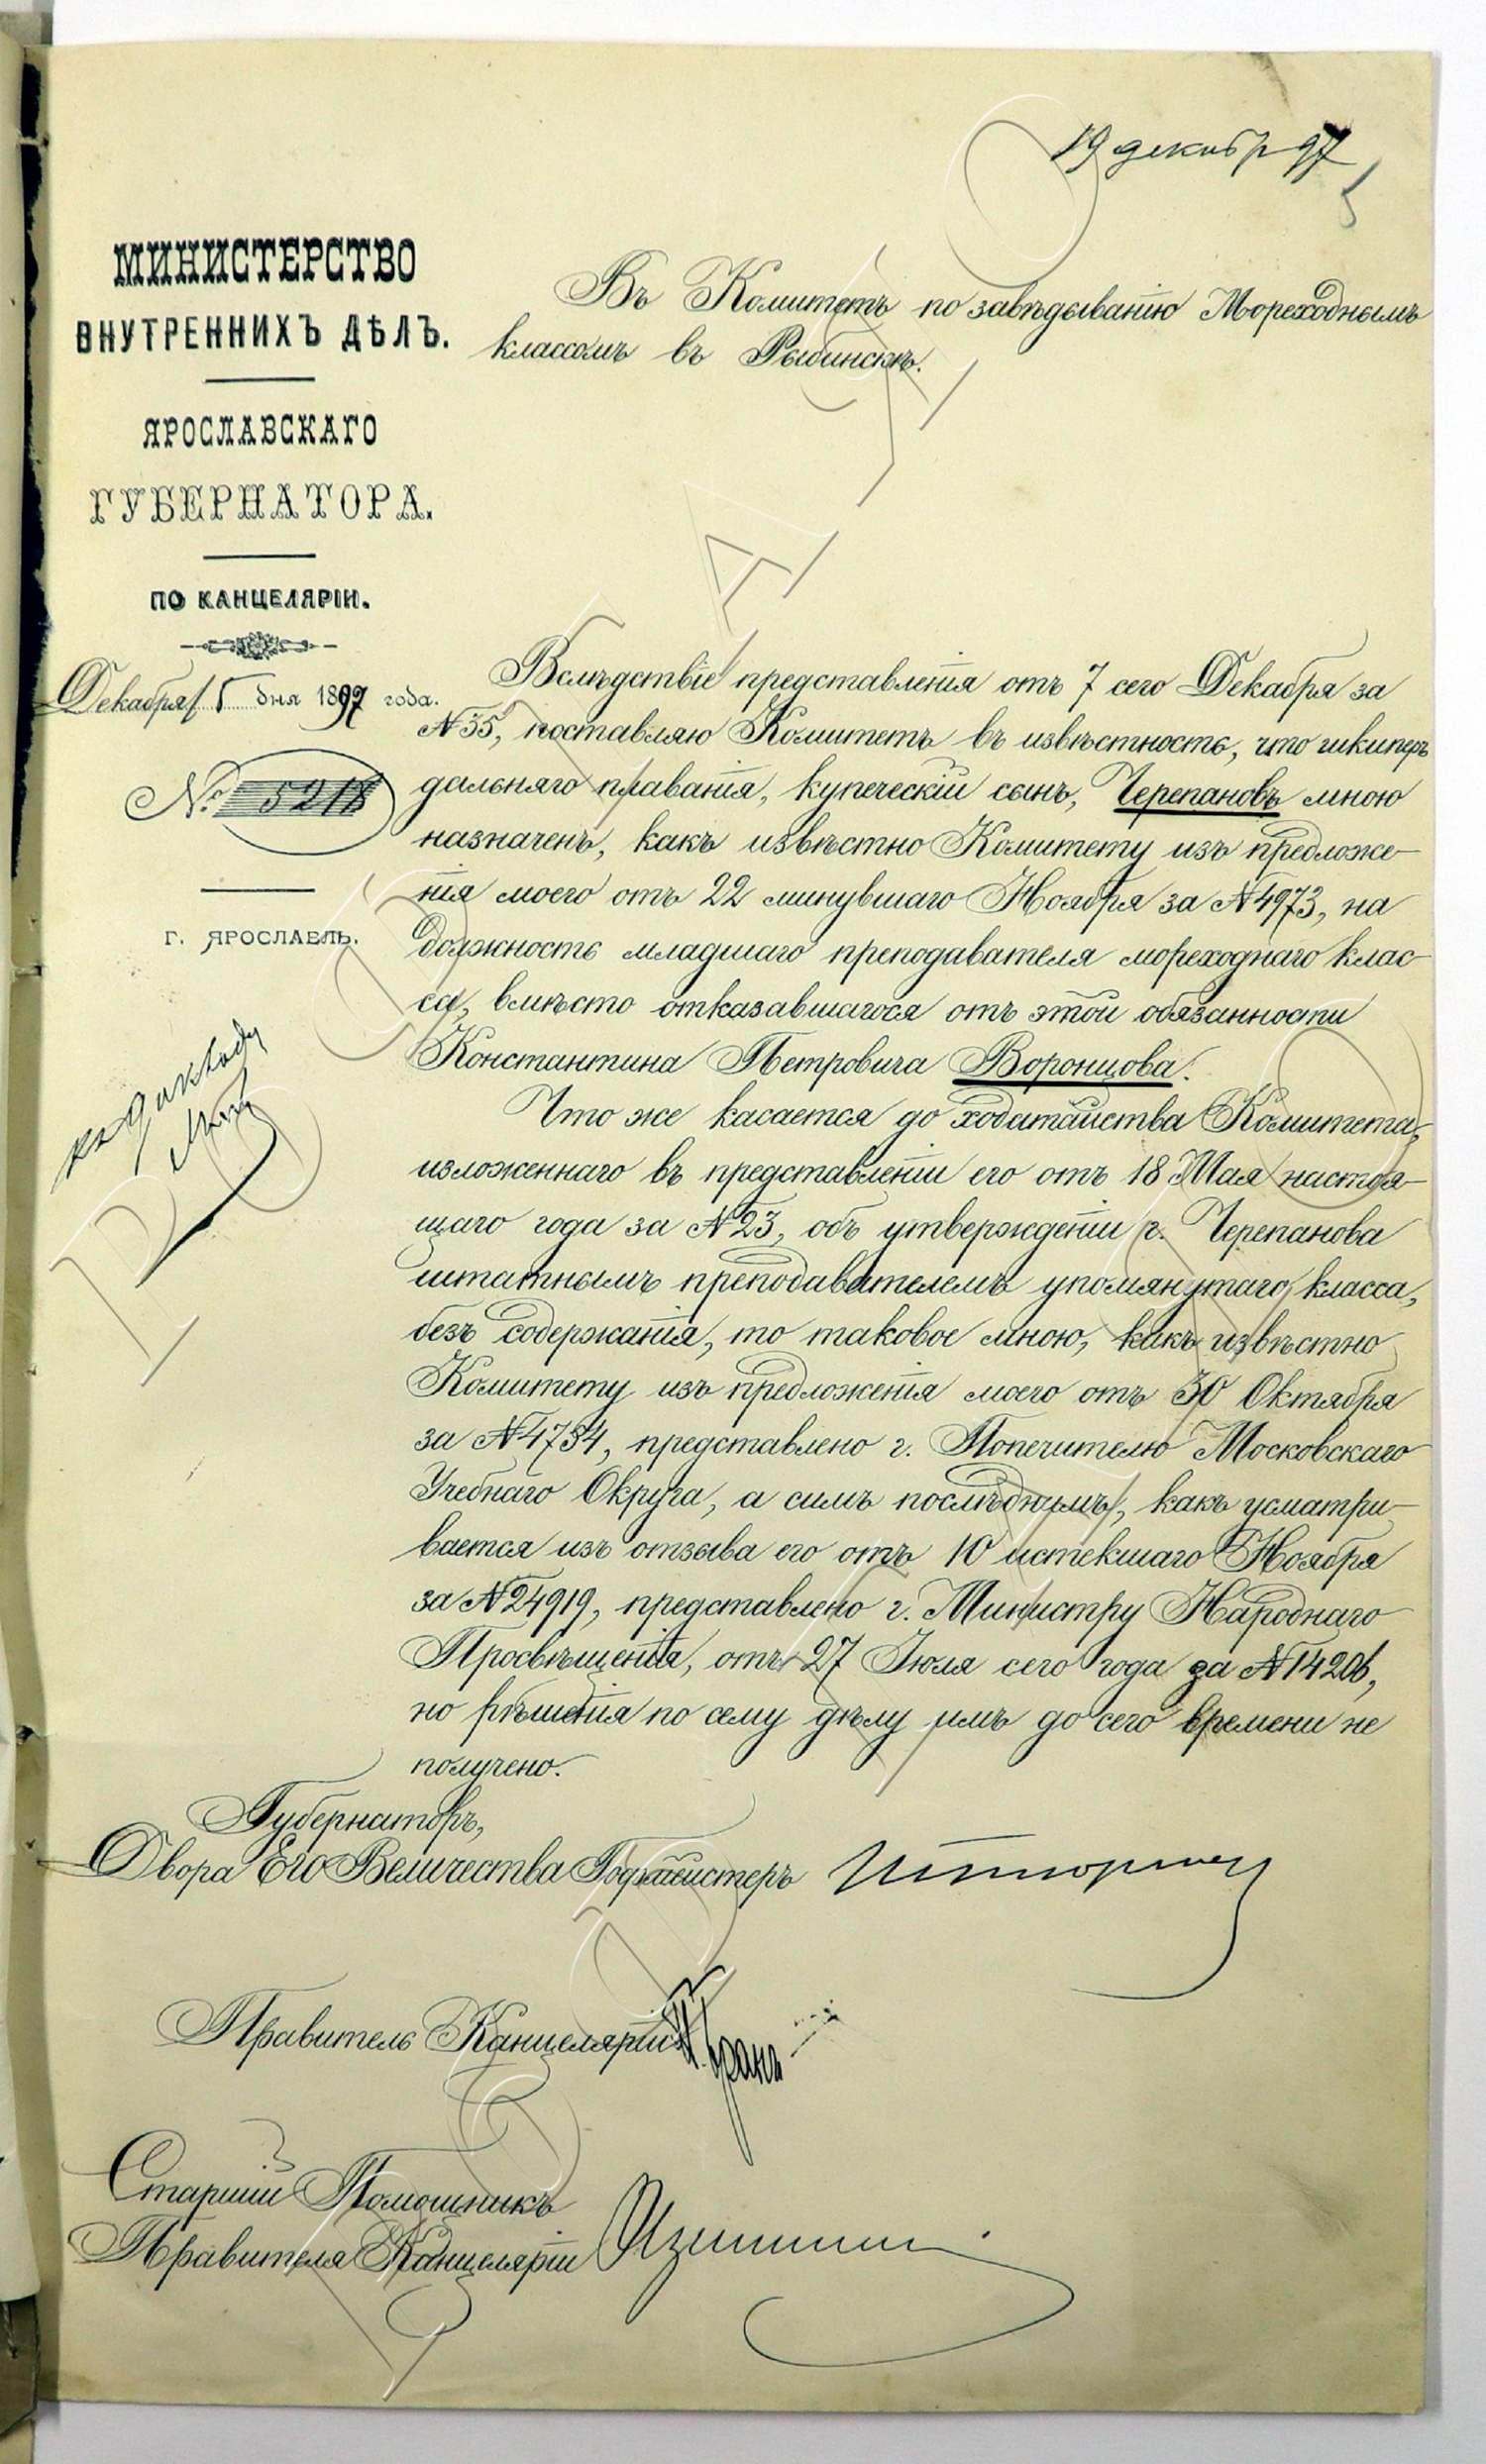 19 декабр 97
МИНИСТЕРСТВО
ВНУТРЕННИХЪ ДѢЛЪ.
ЯРОСЛАВСКАГО
ГУБЕРНАТОРА.
ПО КАНЦЕЛЯРІИ.
Декабря 15 дня 1897 года.
№ 5218
Г. ЯРОСЛАВЛЬ.
къ докладу
Въ Комитетъ по завѣдыванію Мореходнымъ
классомъ въ Рыбинскѣ.
Вслѣдствіе представленія отъ 7 сего Декабря за
№ 35, поставляю Комитетъ въ извѣстность, что шкиперъ
дальняго плаванія, купеческій сынъ, Черепановъ мною
назначенъ, какъ извѣстно Комитету изъ предложе-
нія моего отъ 22 минувшаго Ноября за № 4973, на
должность младшаго преподавателя мореходнаго клас-
са, вмѣсто отказавшагося отъ этой обязанности
Константина Петровича Воронцова.
Что же касается до ходатайства Комитета,
изложеннаго въ представленіи его отъ 18 Мая настоя-
щаго года за № 23, объ утвержденіи г. Черепанова
штатнымъ преподавателемъ упомянутаго класса,
безъ содержанія, то таковое мною, какъ извѣстно
Комитету изъ предложенія моего отъ 30 Октября
за № 4734, представлено г. Попечителю Московскаго
Учебнаго Округа, а симъ послѣднимъ, какъ усматри-
вается изъ отзыва его отъ 10 истекшаго Ноября
за № 24919, представлено г. Министру Народнаго
Просвѣщенія, отъ 27 Іюля сего года за № 14206,
но рѣшенія по сему дѣлу имъ до сего времени не
получено.
Губернаторъ,
Двора Его Величества Гофмейстеръ Штюрмеръ
Правитель Канцеляріи
Старшій Помощникъ
Правителя Канцеляріи